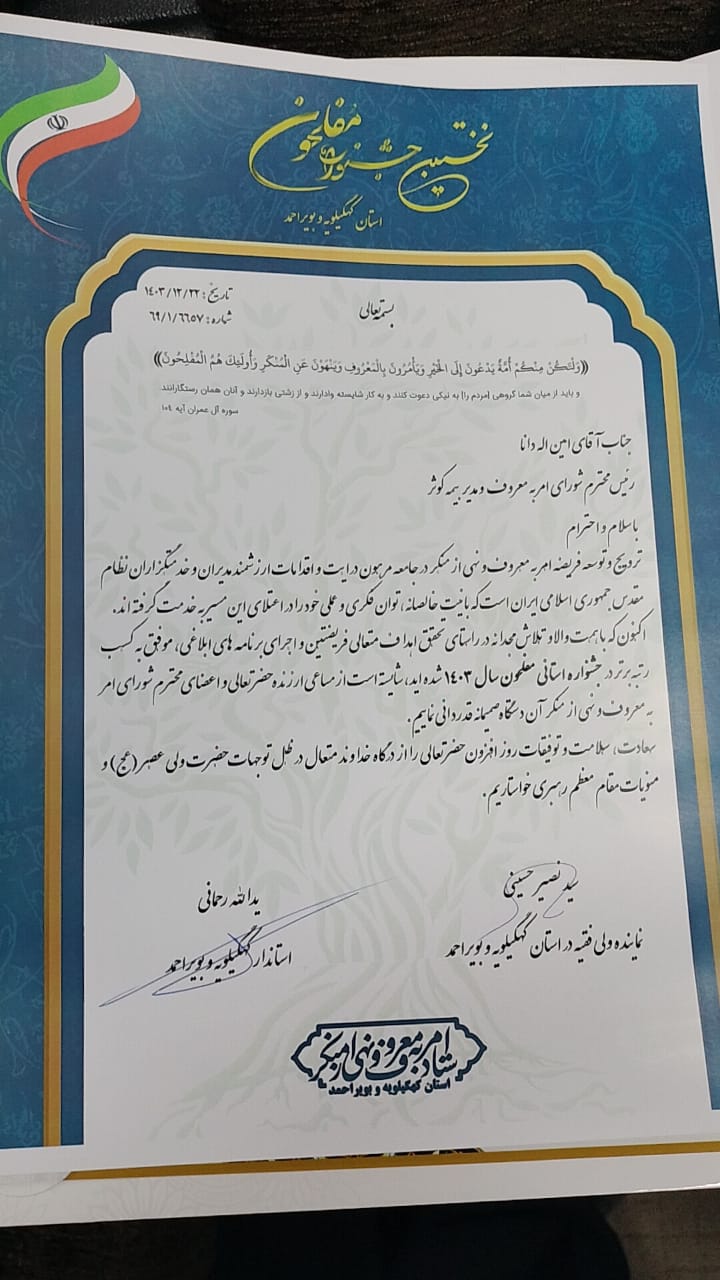 نخستین جشنواره مفلحون
استان کهگیلویه و بویراحمد
بسمه تعالی
تاریخ: ۱۴۰۳/۱۲/۲۲
شماره: ۶۹/۱/۶۶۵۷
((وَلْتَكُنْ مِنْكُمْ أُمَّةٌ يَدْعُونَ إِلَى الْخَيْرِ وَيَأْمُرُونَ بِالْمَعْرُوفِ وَيَنْهَوْنَ عَنِ الْمُنْكَرِ وَأُولَئِكَ هُمُ الْمُفْلِحُونَ))
و باید از میان شما گروهی [مردم را] به نیکی دعوت کنند و به کار شایسته وادارند و از زشتی بازدارند و آنان همان رستگارانند
سوره آل عمران آیه ۱۰۴
جناب آقای امین اله دانا
رئیس محترم شورای امر به معروف و مدیر بیمه کوثر
با سلام و احترام
ترویج و توسعه فریضه امر به معروف و نهی از منکر در جامعه مرهون درایت و اقدامات ارزشمند مدیران و خدمتگزاران نظام
مقدس جمهوری اسلامی ایران است که با نیت خالصانه، توان فکری و عملی خود را در اعتلای این مسیر به خدمت گرفته اند.
اکنون که با همت والا و تلاش مجدانه در راستای تحقق اهداف متعالی فریضتین و اجرای برنامه های ابلاغی، موفق به کسب
رتبه برتر در جشنواره استانی مفلحون سال ۱۴۰۳ شده اید، شایسته است از مساعی ارزنده حضرتعالی و اعضای محترم شورای امر
به معروف و نهی از منکر آن دستگاه صمیمانه قدردانی نماییم.
سعادت، سلامت و توفیقات روز افزون حضرتعالی را از درگاه خداوند متعال در ظل توجهات حضرت ولی عصر (عج) و
منویات مقام معظم رهبری خواستاریم.
سید نصیر حسینی
نماینده ولی فقیه در استان کهگیلویه و بویراحمد
یدالله رحمانی
استاندار کهگیلویه و بویراحمد
ستاد امر به معروف و نهی از منکر
استان کهگیلویه و بویراحمد